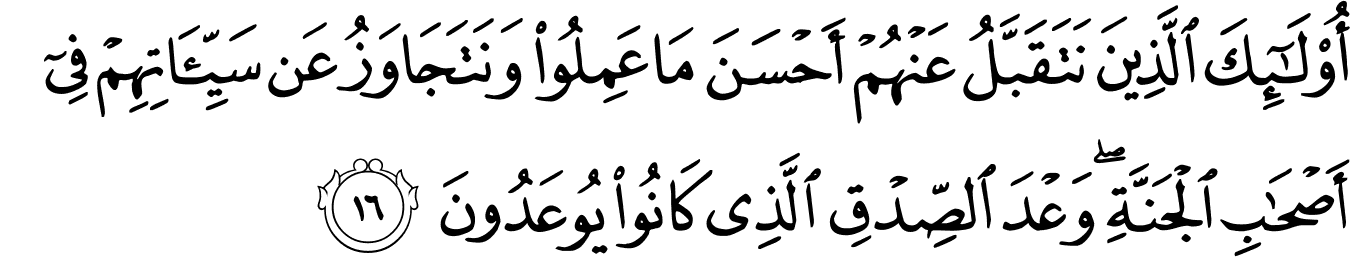 أُو۟لَـٰٓئِكَ ٱلَّذِينَ نَتَقَبَّلُ عَنْهُمْ أَحْسَنَ مَا عَمِلُوا۟ وَنَتَجَاوَزُ عَن سَيِّـَٔاتِهِمْ فِىٓ
أَصْحَـٰبِ ٱلْجَنَّةِ ۖ وَعْدَ ٱلصِّدْقِ ٱلَّذِى كَانُوا۟ يُوعَدُونَ ١٦